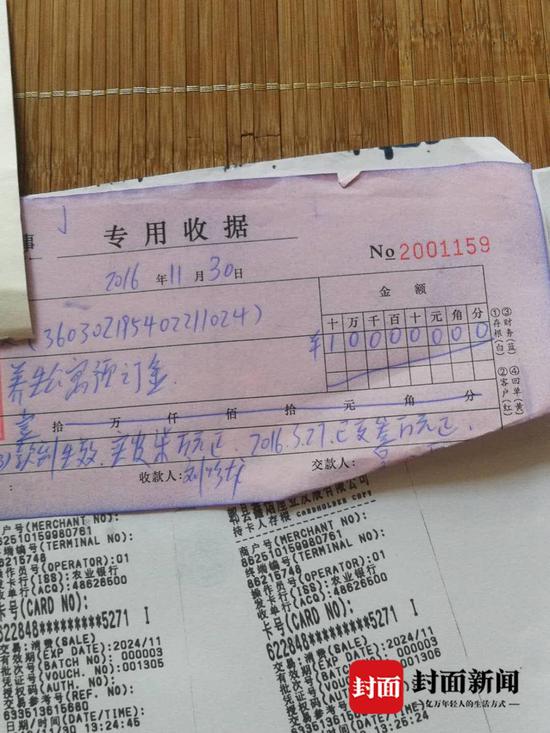 事
专用收据
No 2001159
2016 年 11 月 30 日
金额
十 万 千 百 十 元 角 分
¥ 1 0 0 0 0 0 0 0
(360302195402211024)
养老公寓预订金
①存根(白) ③财务(蓝)
②客户(红) ④回单(黄)
壹 拾 万 仟 佰 拾 元 角 分
2016.5.27.已交叁万元正.
收款人:
交款人:
持卡人存根 CARDHOLDER COPY
商户号(MERCHANT NO):
862510159980761
终端编号(TERMINAL NO):
86215748
操作员号(OPERATOR):01
发卡行(ISS):农业银行
收单行(ACQ):48626500
卡号(CARD NO):
622848*********5271 I
交易:消费(SALE)
有效期(EXP DATE):2024/11
批次号(BATCH NO):000003
凭证号(VOUCH. NO):001305
授权码(AUTH. NO):
交易参考号(REF. NO):
633513615660
日期/时间(DATE/TIME):
2016/11/30 13:24:45
商户号(MERCHANT NO):
862510159980761
终端编号(TERMINAL NO):
86215748
操作员号(OPERATOR):01
发卡行(ISS):农业银行
收单行(ACQ):48626500
卡号(CARD NO):
622848*********5271 I
交易:消费(SALE)
有效期(EXP DATE):2024/11
批次号(BATCH NO):000003
凭证号(VOUCH. NO):001306
13:25:24
封面 封面新闻
亿万年轻人的生活方式